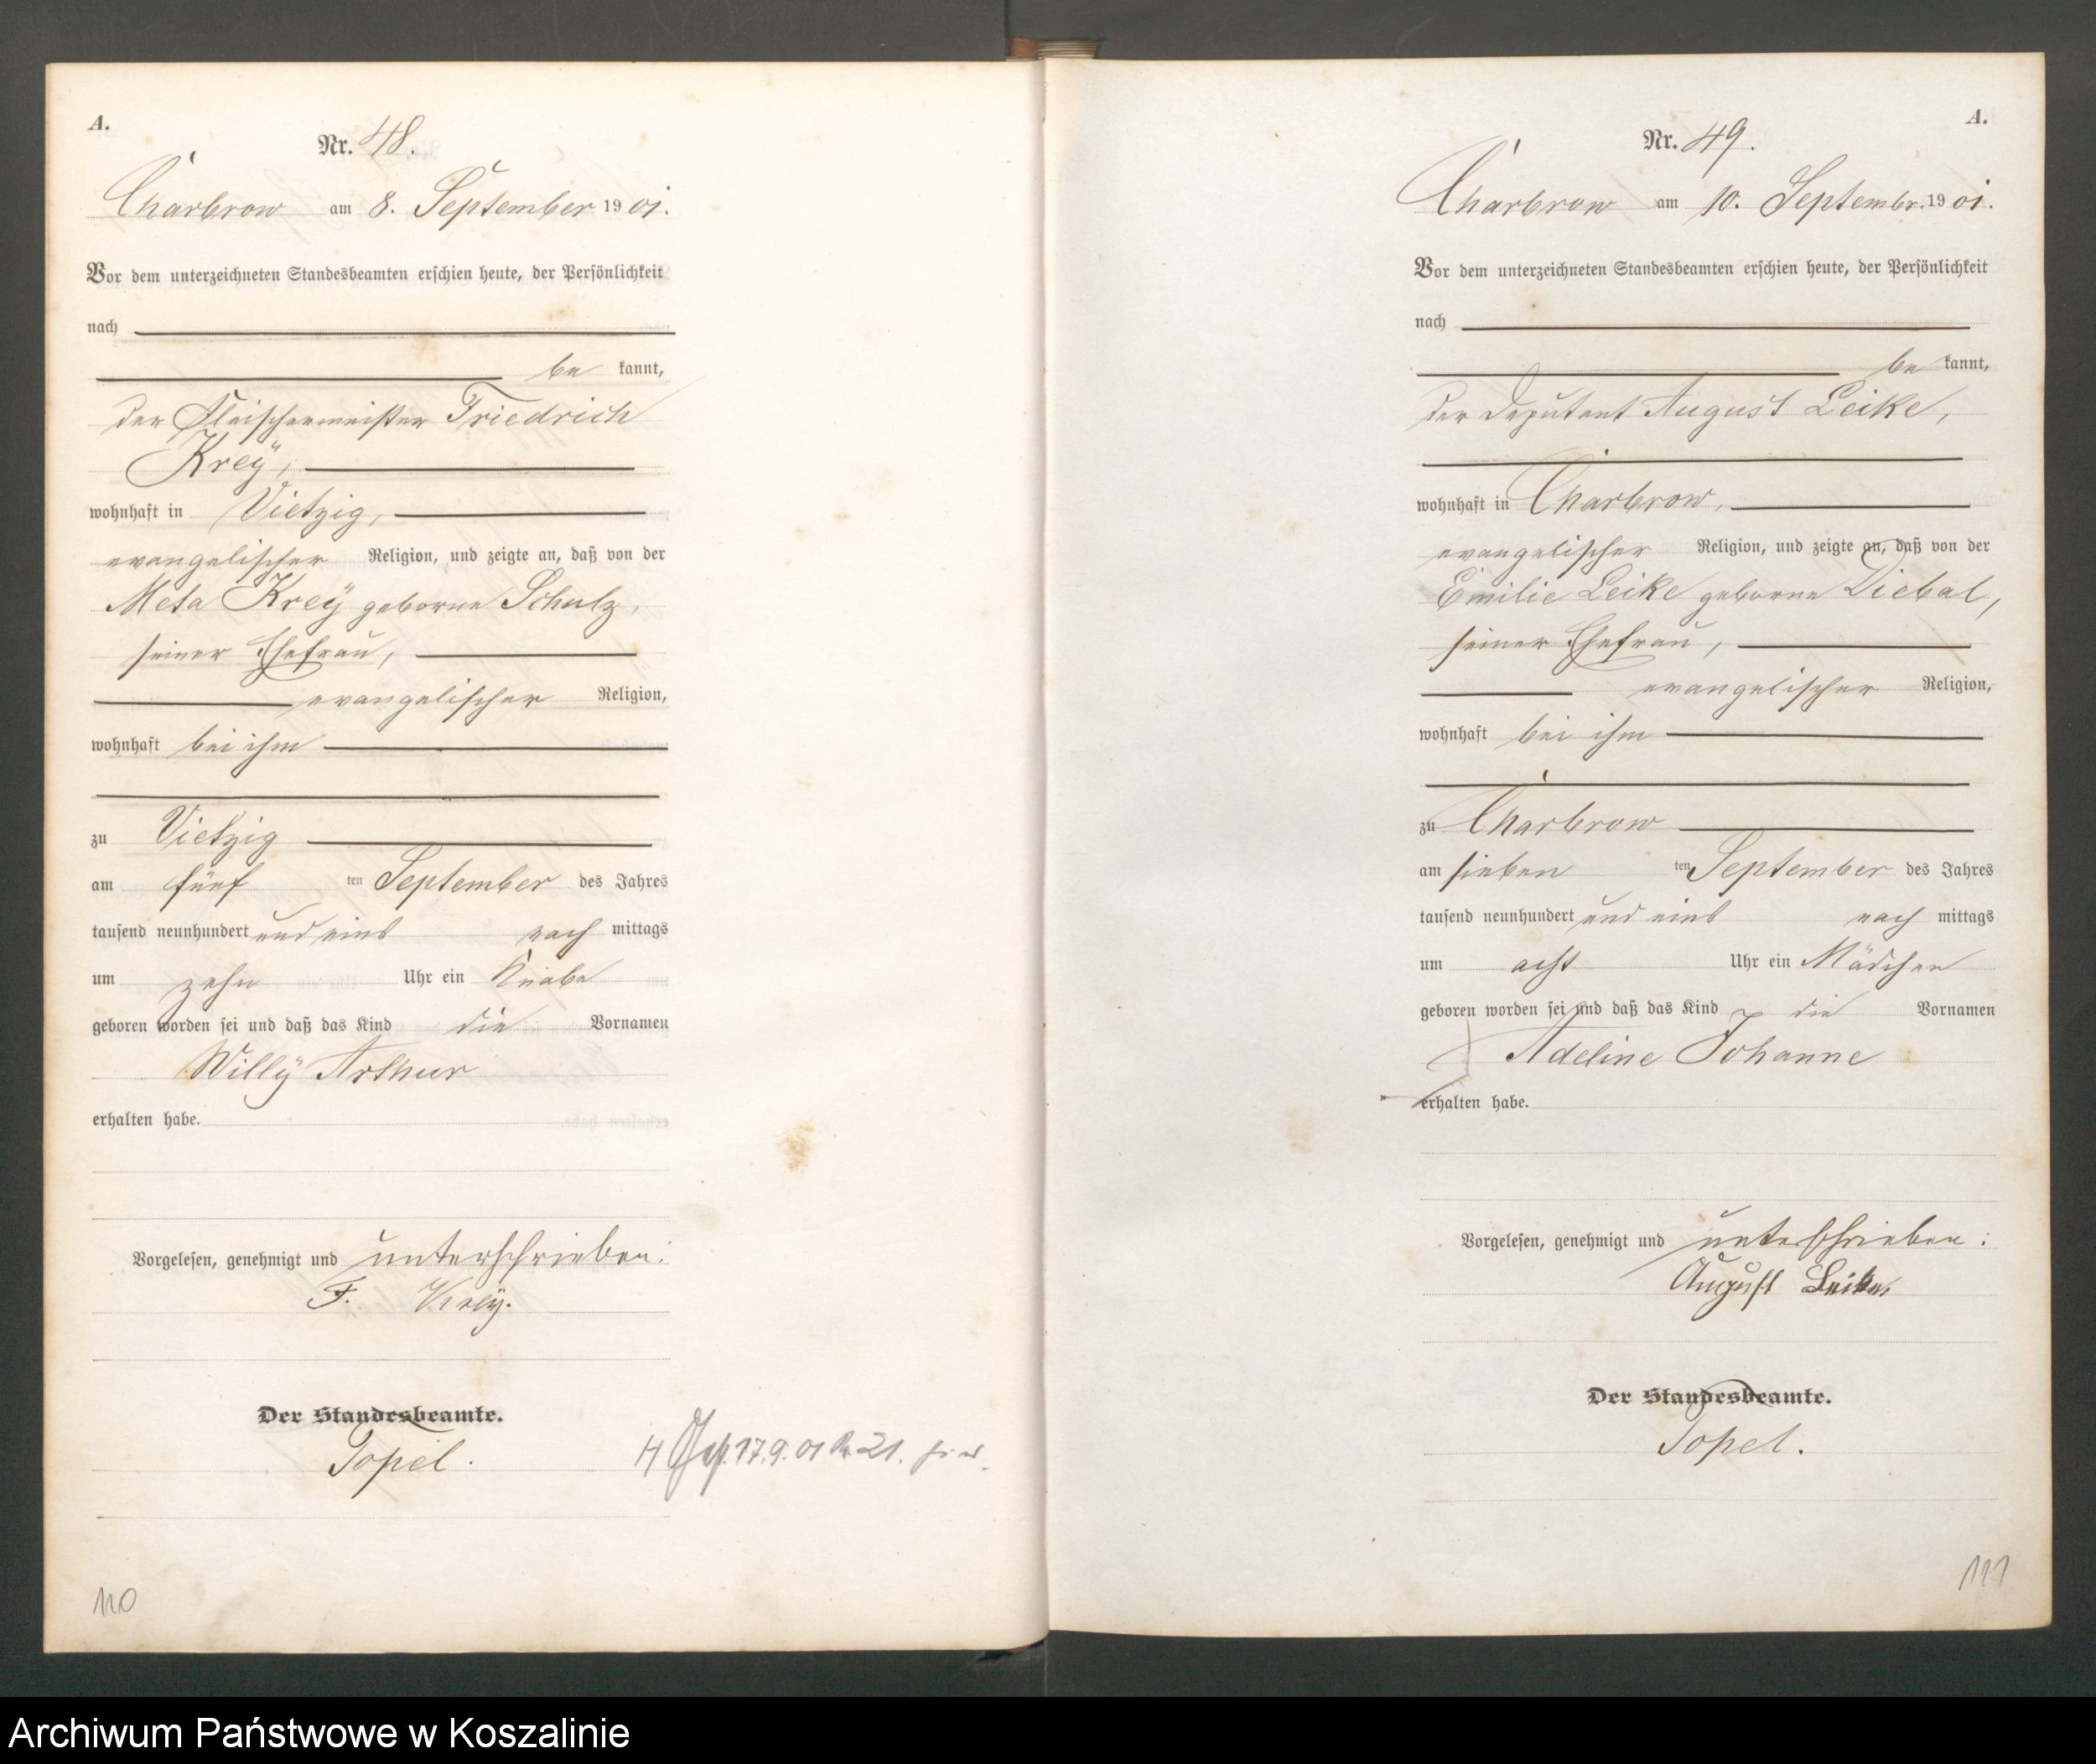 A.
Nr. 48.
Charbrow am 8. September 1901.
Vor dem unterzeichneten Standesbeamten erschien heute, der Persönlichkeit
nach
be kannt,
der Fleischermeister Friedrich
Kreÿ,
wohnhaft in Vietzig,
evangelischer Religion, und zeigte an, daß von der
Meta Kreÿ geborne Schulz,
seiner Ehefrau,
evangelischer Religion,
wohnhaft bei ihm
zu Vietzig
am fünf ten September des Jahres
tausend neunhundert und eins nach mittags
um zehn Uhr ein Knabe
geboren worden sei und daß das Kind die Vornamen
Willÿ Arthur
erhalten habe.
Vorgelesen, genehmigt und unterschrieben:
F. Kreÿ.
Der Standesbeamte.
Topel.
17.9.01 21.
110
A.
Nr. 49.
Charbrow am 10. Septembr. 1901.
Vor dem unterzeichneten Standesbeamten erschien heute, der Persönlichkeit
nach
be kannt,
der Deputant August Leike,
wohnhaft in Charbrow,
evangelischer Religion, und zeigte an, daß von der
Emilie Leike geborne Diebal,
seiner Ehefrau,
evangelischer Religion,
wohnhaft bei ihm
zu Charbrow
am sieben ten September des Jahres
tausend neunhundert und eins nach mittags
um acht Uhr ein Mädchen
geboren worden sei und daß das Kind die Vornamen
Adeline Johanne
erhalten habe.
Vorgelesen, genehmigt und unterschrieben:
August Leike,
Der Standesbeamte.
Topel.
111
Archiwum Państwowe w Koszalinie